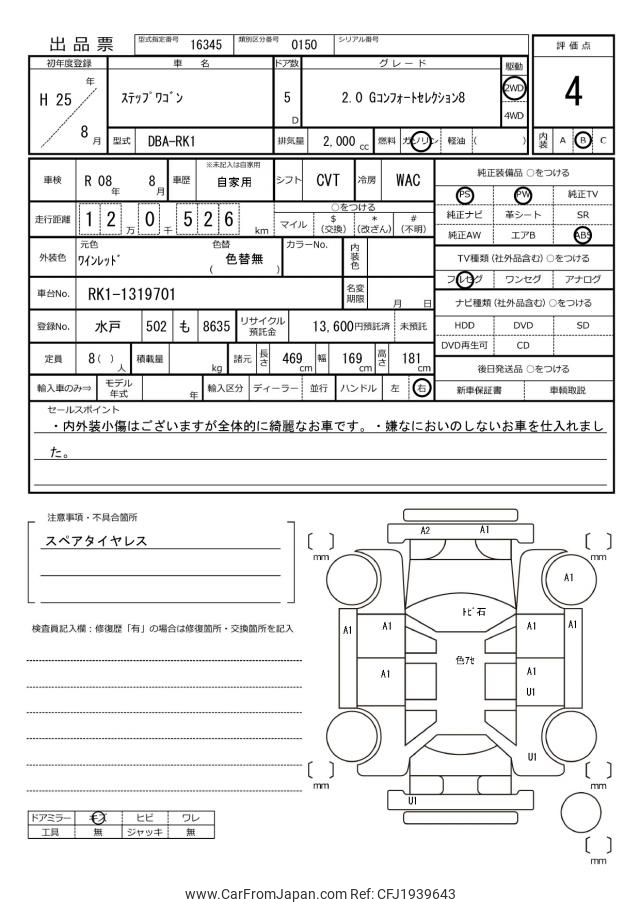 出品票 型式指定番号 16345 類別区分番号 0150 シリアル番号
評価点
初年度登録 車名 ドア数 グレード 駆動
H 25 年 8 月 ステップワゴン 5 D 2.0 Gコンフォートセレクション8 2WD 4WD
4
型式 DBA-RK1 排気量 2,000 cc 燃料 ガソリン 軽油 ( ) 内装 A B C
車検 R 08 年 8 月 車歴 ※未記入は自家用 自家用 シフト CVT 冷房 WAC
走行距離 1 2 万 0 千 5 2 6 km ○をつける
マイル $ (交換) * (改ざん) # (不明)
外装色 元色 ワインレッド 色替 ( 色替無 ) カラーNo. 内装色
車台No. RK1-1319701 名変期限 月 日
登録No. 水戸 502 も 8635 リサイクル預託金 13,600円預託済 未預託
定員 8 ( ) 人 積載量 kg 諸元 長さ 469 cm 幅 169 cm 高さ 181 cm
輸入車のみ⇒ モデル年式 年 輸入区分 ディーラー 並行 ハンドル 左 右
純正装備品 ○をつける
PS PW 純正TV
純正ナビ 革シート SR
純正AW エアB ABS
TV種類 (社外品含む) ○をつける
フルセグ ワンセグ アナログ
ナビ種類 (社外品含む) ○をつける
HDD DVD SD
DVD再生可 CD
後日発送品 ○をつける
新車保証書 車輌取説
セールスポイント
・内外装小傷はございますが全体的に綺麗なお車です。・嫌なにおいのしないお車を仕入れまし
た。
注意事項・不具合箇所
スペアタイヤレス
検査員記入欄：修復歴「有」の場合は修復箇所・交換箇所を記入
A2 A1
mm mm
A1
トビ石
A1 A1 A1 A1
色アセ
A1 A1
U1
U1
mm mm
U1
mm
ドアミラー キズ ヒビ ワレ
工具 無 ジャッキ 無
www.CarFromJapan.com Ref: CFJ1939643